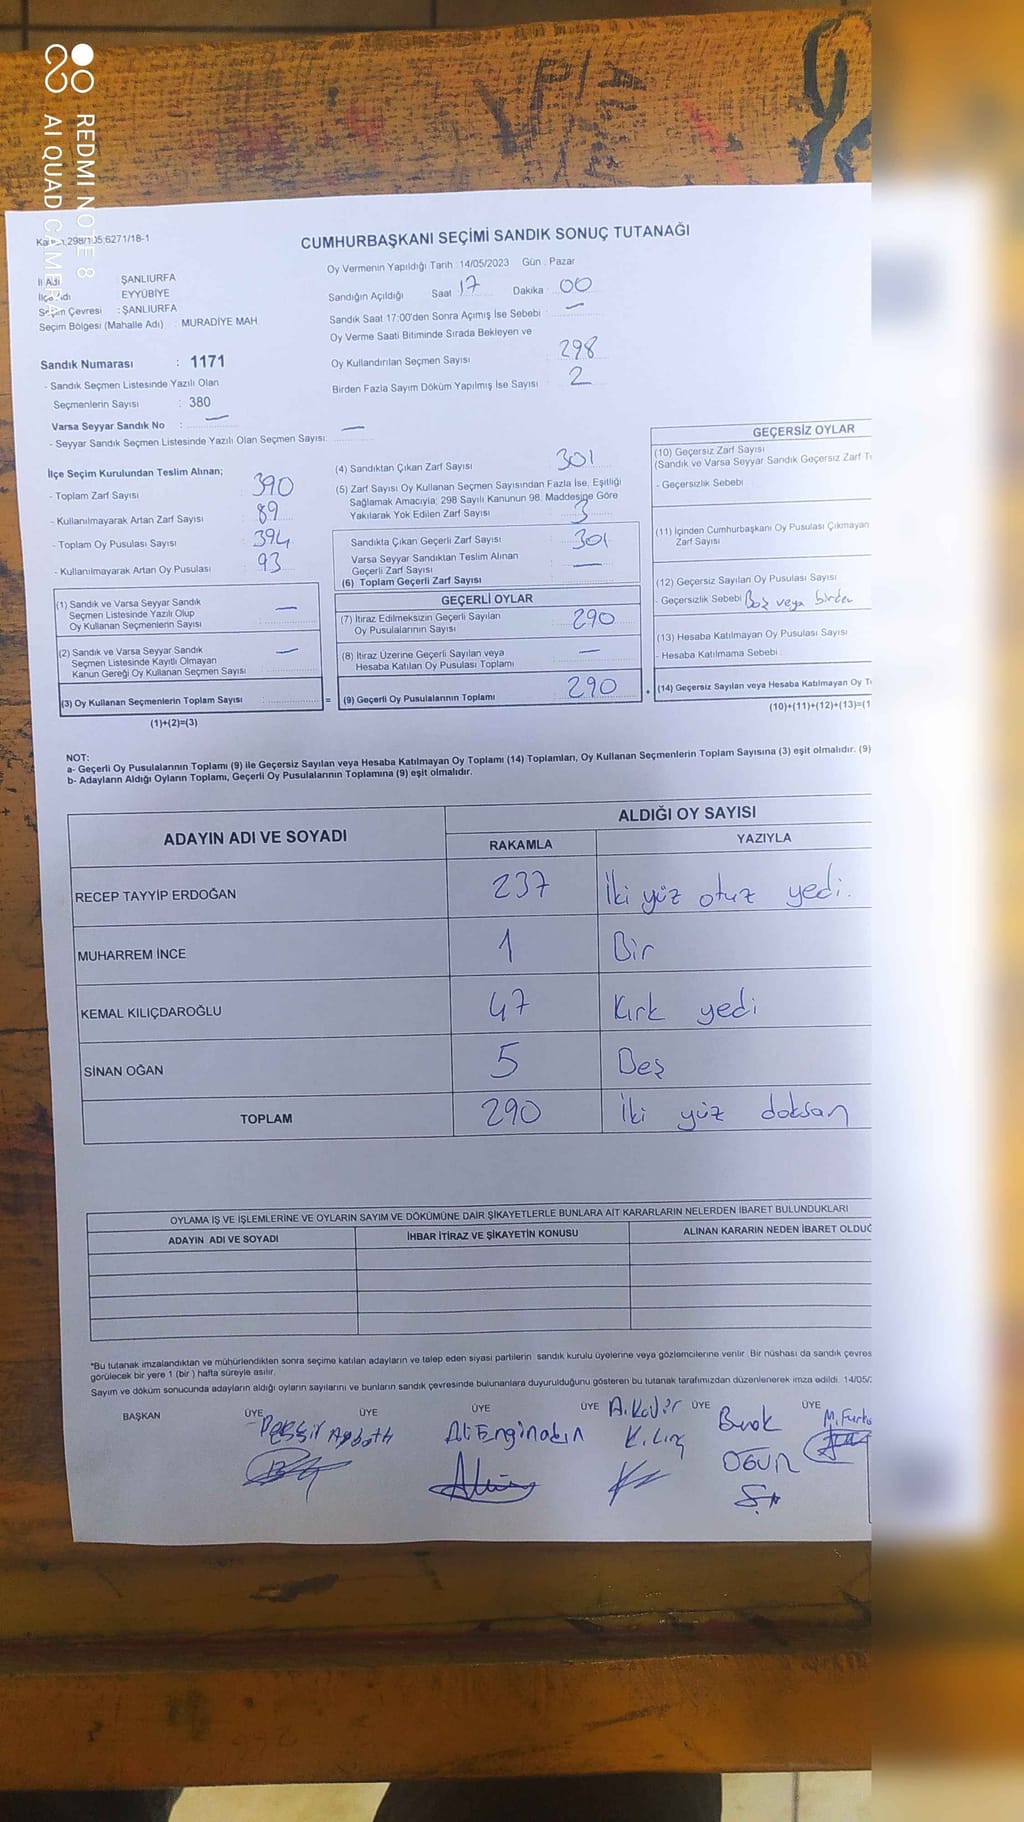 REDMI NOTE 8
AI QUAD CAMERA
298/105;6271/18-1
CUMHURBAŞKANI SEÇİMİ SANDIK SONUÇ TUTANAĞI
İl Adı ŞANLIURFA
EYYÜBİYE
Seçim Çevresi : ŞANLIURFA
Seçim Bölgesi (Mahalle Adı) : MURADİYE MAH
Oy Vermenin Yapıldığı Tarih : 14/05/2023 Gün : Pazar
Sandığın Açıldığı Saat 17 Dakika : 00
Sandık Saat 17:00'den Sonra Açılmış İse Sebebi : —
Oy Verme Saati Bitiminde Sırada Bekleyen ve
Oy Kullandırılan Seçmen Sayısı 298
Birden Fazla Sayım Döküm Yapılmış İse Sayısı 2
Sandık Numarası : 1171
- Sandık Seçmen Listesinde Yazılı Olan
Seçmenlerin Sayısı : 380
Varsa Seyyar Sandık No : —
- Seyyar Sandık Seçmen Listesinde Yazılı Olan Seçmen Sayısı: —
İlçe Seçim Kurulundan Teslim Alınan;
- Toplam Zarf Sayısı 390
- Kullanılmayarak Artan Zarf Sayısı 89
- Toplam Oy Pusulası Sayısı 394
- Kullanılmayarak Artan Oy Pusulası 93
(1) Sandık ve Varsa Seyyar Sandık
Seçmen Listesinde Yazılı Olup
Oy Kullanan Seçmenlerin Sayısı —
(2) Sandık ve Varsa Seyyar Sandık
Seçmen Listesinde Kayıtlı Olmayan
Kanun Gereği Oy Kullanan Seçmen Sayısı —
(3) Oy Kullanan Seçmenlerin Toplam Sayısı =
(1)+(2)=(3)
(4) Sandıktan Çıkan Zarf Sayısı 301
(5) Zarf Sayısı Oy Kullanan Seçmen Sayısından Fazla İse, Eşitliği
Sağlamak Amacıyla; 298 Sayılı Kanunun 98. Maddesine Göre
Yakılarak Yok Edilen Zarf Sayısı 3
Sandıkta Çıkan Geçerli Zarf Sayısı 301
Varsa Seyyar Sandıktan Teslim Alınan
Geçerli Zarf Sayısı —
(6) Toplam Geçerli Zarf Sayısı
GEÇERLİ OYLAR
(7) İtiraz Edilmeksizin Geçerli Sayılan
Oy Pusulalarının Sayısı 290
(8) İtiraz Üzerine Geçerli Sayılan veya
Hesaba Katılan Oy Pusulası Toplamı —
(9) Geçerli Oy Pusulalarının Toplamı 290
GEÇERSİZ OYLAR
(10) Geçersiz Zarf Sayısı
(Sandık ve Varsa Seyyar Sandık Geçersiz Zarf
- Geçersizlik Sebebi
(11) İçinden Cumhurbaşkanı Oy Pusulası Çıkmayan
Zarf Sayısı
(12) Geçersiz Sayılan Oy Pusulası Sayısı
- Geçersizlik Sebebi Boş veya birden
(13) Hesaba Katılmayan Oy Pusulası Sayısı
- Hesaba Katılmama Sebebi
(14) Geçersiz Sayılan veya Hesaba Katılmayan Oy
(10)+(11)+(12)+(13)=(1
NOT:
a- Geçerli Oy Pusulalarının Toplamı (9) ile Geçersiz Sayılan veya Hesaba Katılmayan Oy Toplamı (14) Toplamları, Oy Kullanan Seçmenlerin Toplam Sayısına (3) eşit olmalıdır. (9)
b- Adayların Aldığı Oyların Toplamı, Geçerli Oy Pusulalarının Toplamına (9) eşit olmalıdır.
ADAYIN ADI VE SOYADI ALDIĞI OY SAYISI
RAKAMLA YAZIYLA
RECEP TAYYİP ERDOĞAN 237 İki yüz otuz yedi.
MUHARREM İNCE 1 Bir
KEMAL KILIÇDAROĞLU 47 Kırk yedi
SİNAN OĞAN 5 Beş
TOPLAM 290 İki yüz doksan
OYLAMA İŞ VE İŞLEMLERİNE VE OYLARIN SAYIM VE DÖKÜMÜNE DAİR ŞİKAYETLERLE BUNLARA AİT KARARLARIN NELERDEN İBARET BULUNDUKLARI
ADAYIN ADI VE SOYADI İHBAR İTİRAZ VE ŞİKAYETİN KONUSU ALINAN KARARIN NEDEN İBARET OLDUĞ
*Bu tutanak imzalandıktan ve mühürlendikten sonra seçime katılan adayların ve talep eden siyasi partilerin sandık kurulu üyelerine veya gözlemcilerine verilir. Bir nüshası da sandık çevres
görülecek bir yere 1 (bir) hafta süreyle asılır.
Sayım ve döküm sonucunda adayların aldığı oyların sayılarını ve bunların sandık çevresinde bulunanlara duyurulduğunu gösteren bu tutanak tarafımızdan düzenlenerek imza edildi. 14/05/
BAŞKAN ÜYE ÜYE ÜYE ÜYE ÜYE ÜYE
Ali Engin A. Kadir Burak M. Furka
K.lıç OGUN